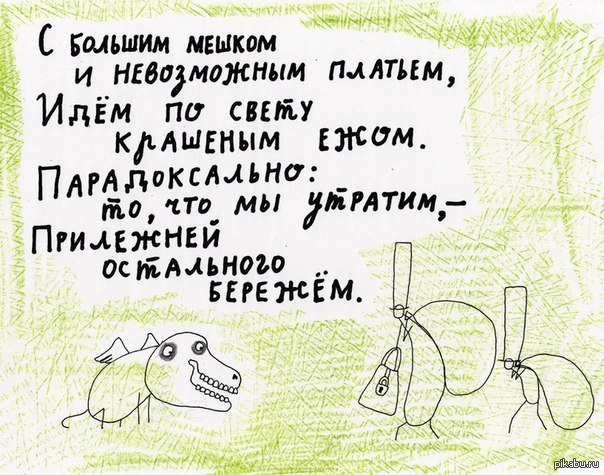 С большим мешком
и невозможным платьем,
Идём по свету
крашеным ежом.
Парадоксально:
то, что мы утратим,–
Прилежней
остального
бережём.
pikabu.ru